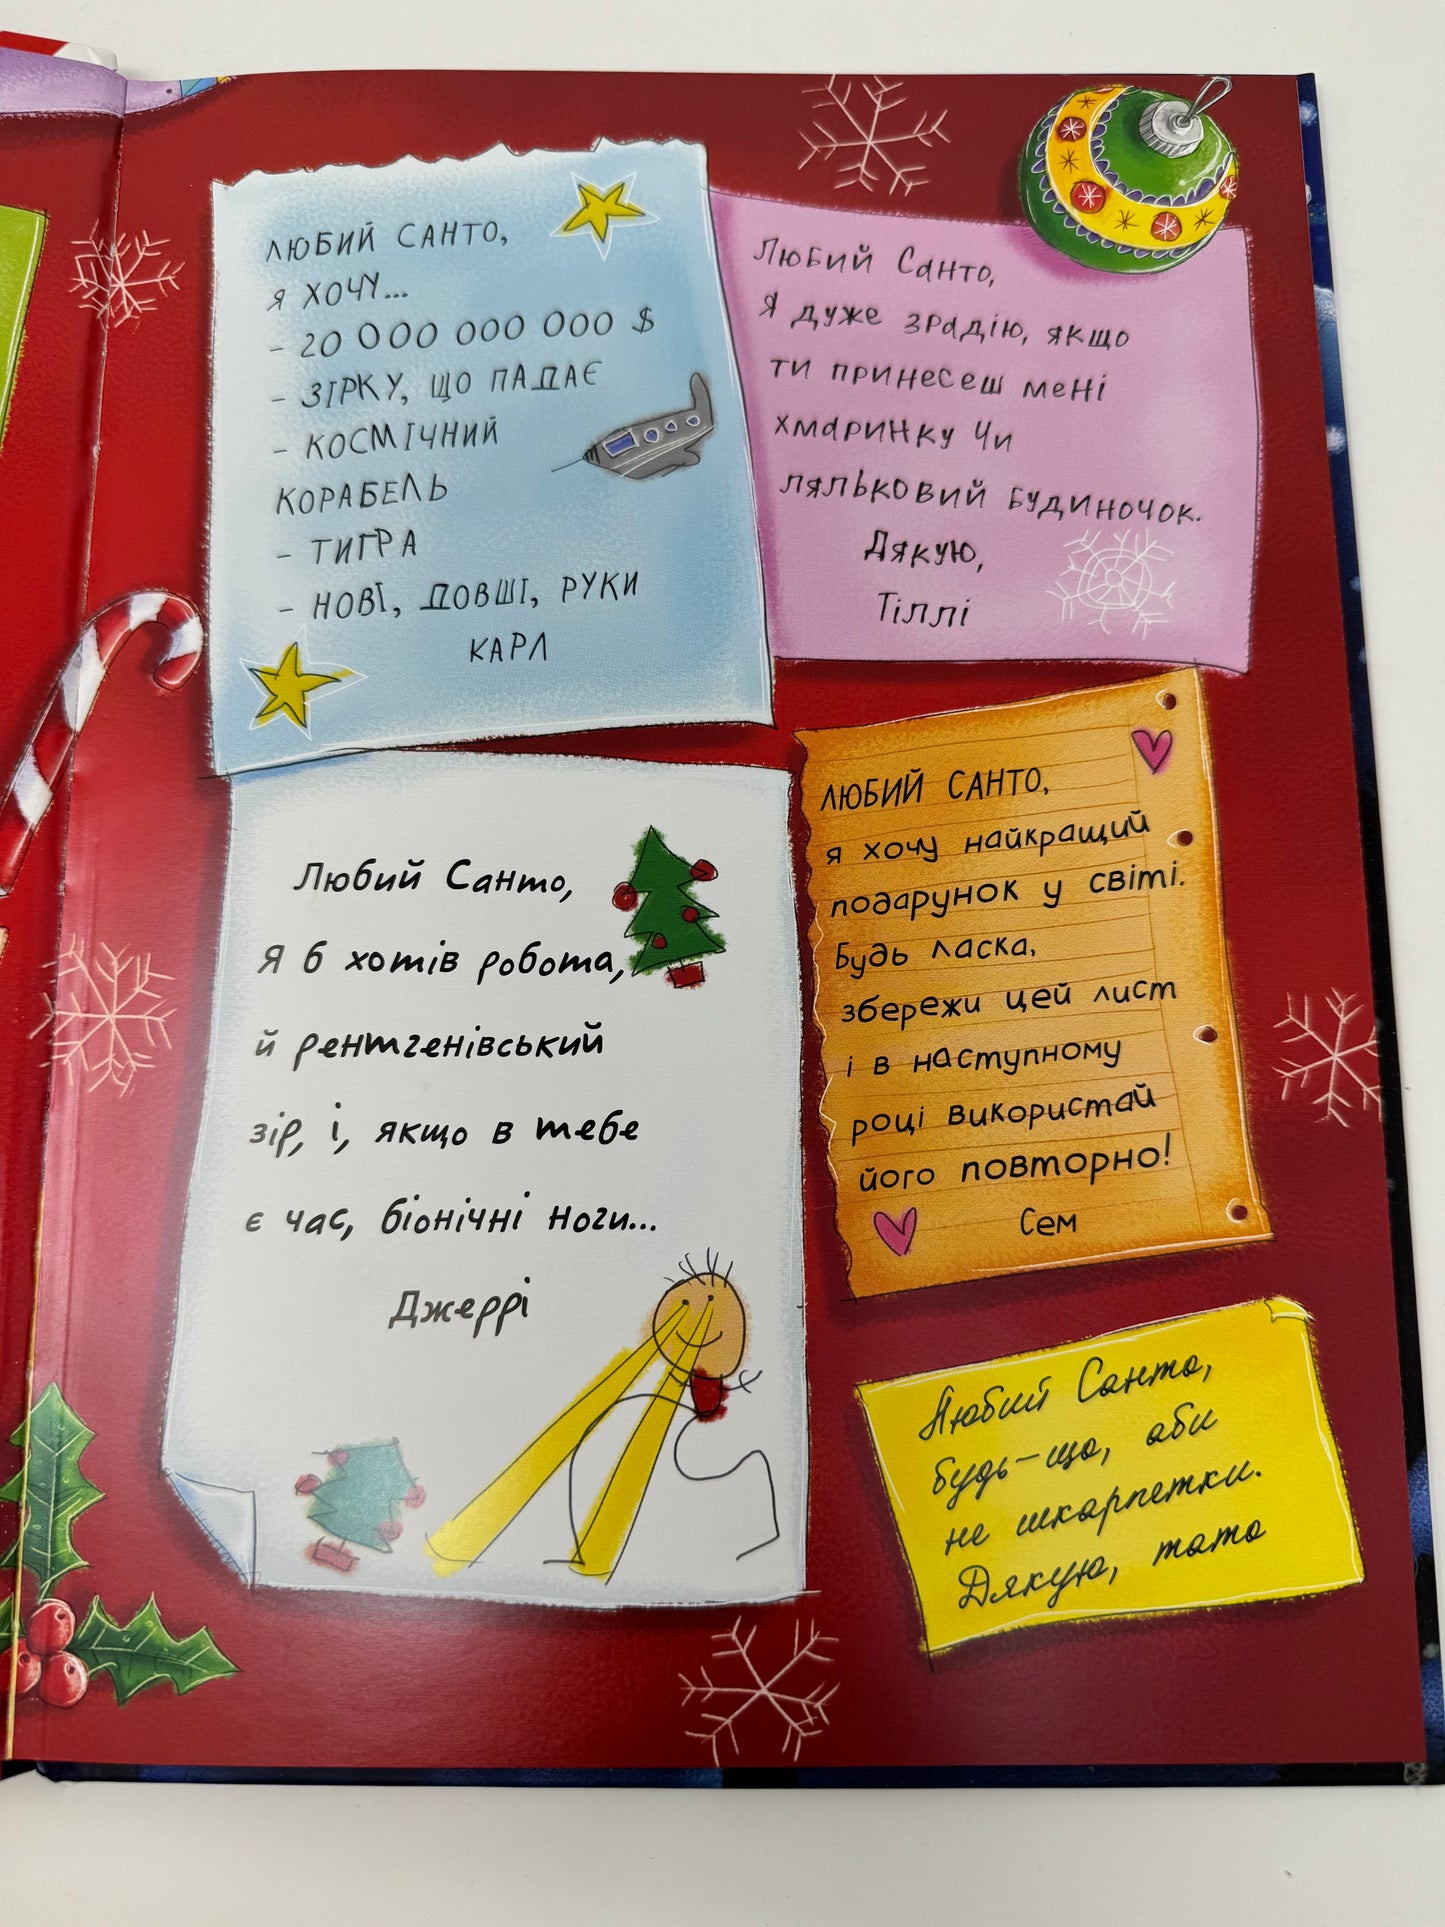 ЛЮБИЙ САНТО,
Я ХОЧУ...
- 20 000 000 000 $
- ЗІРКУ, ЩО ПАДАЄ
- КОСМІЧНИЙ
КОРАБЕЛЬ
- ТИГРА
- НОВІ, ДОВШІ, РУКИ
КАРЛ
Любий Санто,
Я дуже зрадію, якщо
ти принесеш мені
хмаринку чи
ляльковий будиночок.
Дякую,
Тіллі
Любий Санто,
Я б хотів робота,
й рентгенівський
зір, і, якщо в тебе
є час, біонічні ноги...
Джеррі
ЛЮБИЙ САНТО,
я хочу найкращий
подарунок у світі.
Будь ласка,
збережи цей лист
і в наступному
році використай
його повторно!
Сем
Любий Санто,
будь-що, аби
не шкарпетки.
Дякую, тато